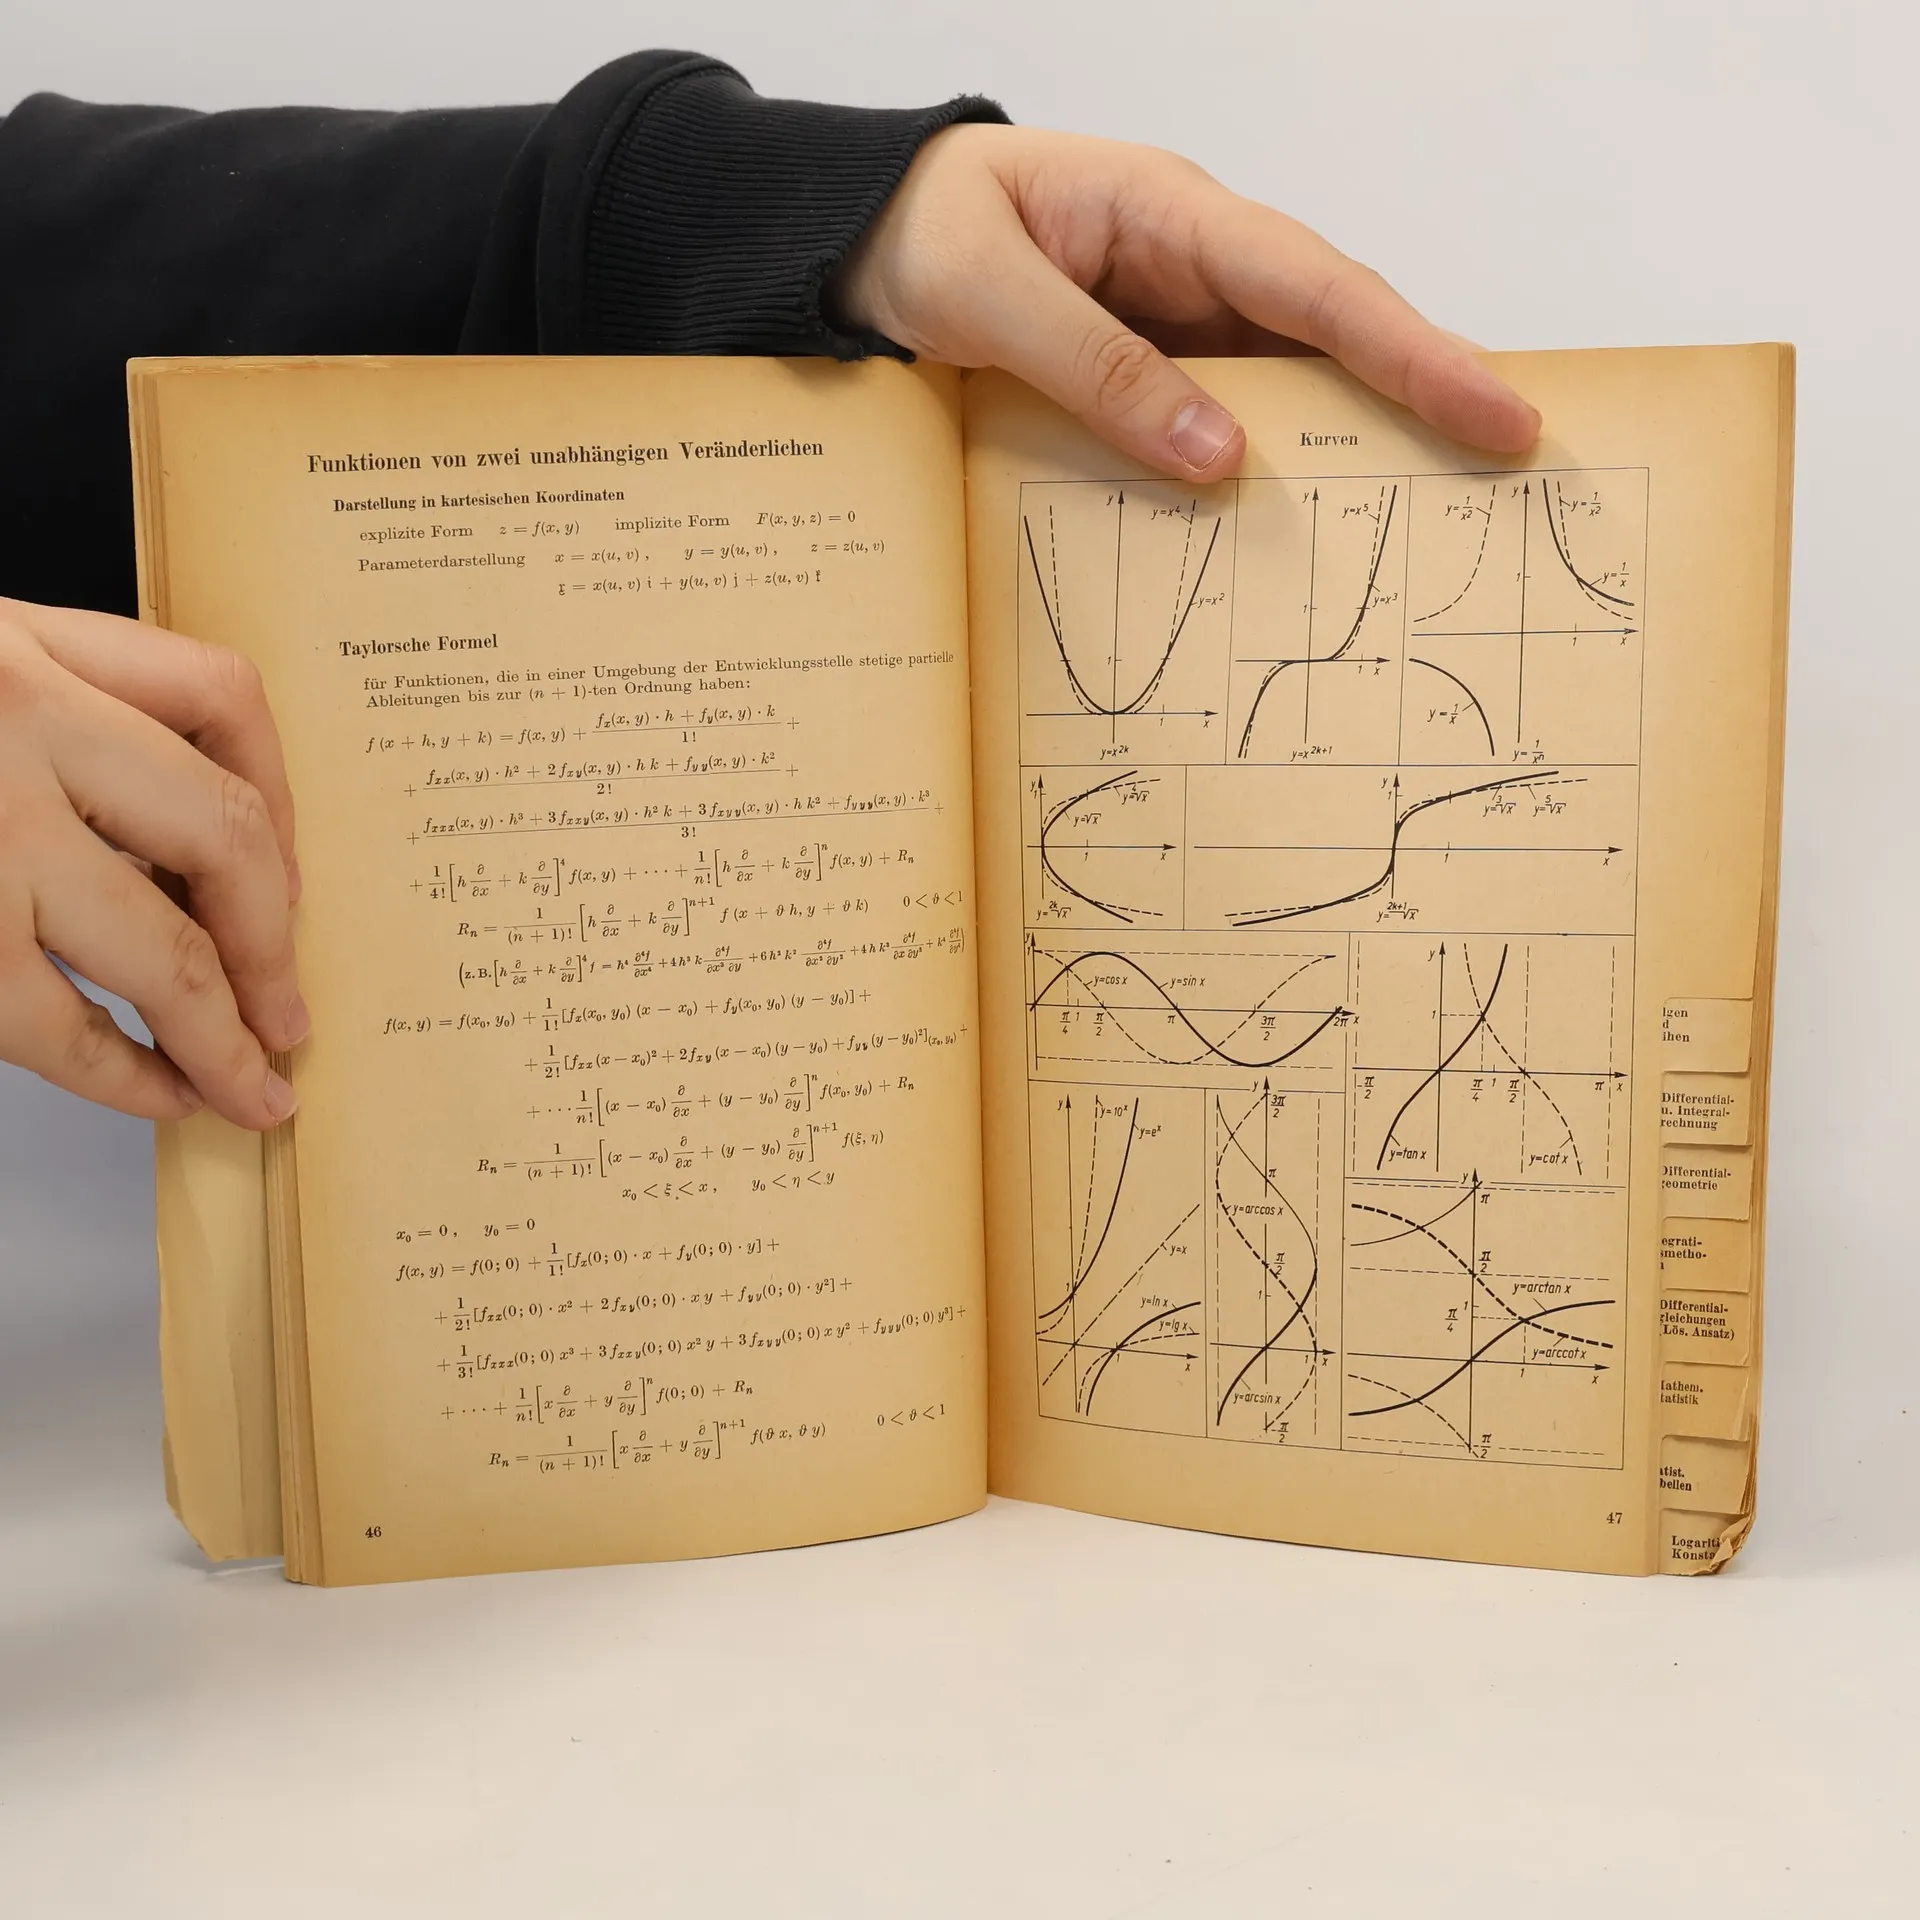 Funktionen von zwei unabhängigen Veränderlichen
Darstellung in kartesischen Koordinaten
explizite Form z = f(x, y) implizite Form F(x, y, z) = 0
Parameterdarstellung x = x(u, v) , y = y(u, v) , z = z(u, v)
𝔵 = x(u, v) i + y(u, v) j + z(u, v) 𝔨
Taylorsche Formel
für Funktionen, die in einer Umgebung der Entwicklungsstelle stetige partielle
Ableitungen bis zur (n + 1)-ten Ordnung haben:
f (x + h, y + k) = f(x, y) + \frac{f_x(x, y) · h + f_y(x, y) · k}{1!} +
+ \frac{f_{xx}(x, y) · h² + 2 f_{xy}(x, y) · h k + f_{yy}(x, y) · k²}{2!} +
+ \frac{f_{xxx}(x, y) · h³ + 3 f_{xxy}(x, y) · h² k + 3 f_{xyy}(x, y) · h k² + f_{yyy}(x, y) · k³}{3!} +
+ \frac{1}{4!} [h \frac{∂}{∂x} + k \frac{∂}{∂y}]^4 f(x, y) + · · · + \frac{1}{n!} [h \frac{∂}{∂x} + k \frac{∂}{∂y}]^n f(x, y) + R_n
R_n = \frac{1}{(n + 1)!} [h \frac{∂}{∂x} + k \frac{∂}{∂y}]^{n+1} f (x + ϑ h, y + ϑ k) 0 < ϑ < 1
(z. B. [h \frac{∂}{∂x} + k \frac{∂}{∂y}]^4 f = h⁴ \frac{∂⁴f}{∂x⁴} + 4 h³ k \frac{∂⁴f}{∂x³ ∂y} + 6 h² k² \frac{∂⁴f}{∂x² ∂y²} + 4 h k³ \frac{∂⁴f}{∂x ∂y³} + k⁴ \frac{∂⁴f}{∂y⁴})
f(x, y) = f(x₀, y₀) + \frac{1}{1!} [f_x(x₀, y₀) (x − x₀) + f_y(x₀, y₀) (y − y₀)] +
+ \frac{1}{2!} [f_{xx} (x − x₀)² + 2 f_{xy} (x − x₀) (y − y₀) + f_{yy} (y − y₀)²]_{(x₀, y₀)} +
+ · · · \frac{1}{n!} [(x − x₀) \frac{∂}{∂x} + (y − y₀) \frac{∂}{∂y}]^n f(x₀, y₀) + R_n
R_n = \frac{1}{(n + 1)!} [(x − x₀) \frac{∂}{∂x} + (y − y₀) \frac{∂}{∂y}]^{n+1} f(ξ, η)
x₀ < ξ < x , y₀ < η < y
x₀ = 0 , y₀ = 0
f(x, y) = f(0; 0) + \frac{1}{1!} [f_x(0; 0) · x + f_y(0; 0) · y] +
+ \frac{1}{2!} [f_{xx}(0; 0) · x² + 2 f_{xy}(0; 0) · x y + f_{yy}(0; 0) · y²] +
+ \frac{1}{3!} [f_{xxx}(0; 0) x³ + 3 f_{xxy}(0; 0) x² y + 3 f_{xyy}(0; 0) x y² + f_{yyy}(0; 0) y³] +
+ · · · + \frac{1}{n!} [x \frac{∂}{∂x} + y \frac{∂}{∂y}]^n f(0; 0) + R_n
R_n = \frac{1}{(n + 1)!} [x \frac{∂}{∂x} + y \frac{∂}{∂y}]^{n+1} f(ϑ x, ϑ y) 0 < ϑ < 1
46
Kurven
y y=x⁴ y=x² 1 1 x y=x^{2k}
y y=x⁵ y=x³ 1 1 x y=x^{2k+1}
y=\frac{1}{x²} y y=\frac{1}{x²} y=\frac{1}{x} 1 1 x y=\frac{1}{x} y=\frac{1}{xⁿ}
y 1 y=\sqrt[4]{x} y=√x 1 x y=\sqrt[2k]{x}
y 1 y=\sqrt[3]{x} y=\sqrt[5]{x} 1 x y=\sqrt[2k+1]{x}
y 1 y=cos x y=sin x \frac{π}{4} 1 \frac{π}{2} π \frac{3π}{2} 2π x
y 1 -\frac{π}{2} \frac{π}{4} 1 \frac{π}{2} π x y=tan x y=cot x
y y=10^x y=e^x y=x 1 y=ln x y=lg x 1 x
y \frac{3π}{2} π y=arccos x \frac{π}{2} 1 1 x y=arcsin x -\frac{π}{2}
y π \frac{π}{2} y=arctan x 1 \frac{π}{4} y=arccot x 1 x \frac{π}{2}
47
lgen
d
ihen
Differential-
u. Integral-
rechnung
Differential-
geometrie
egrati-
smetho-
Differential-
gleichungen
(Lös. Ansatz)
Mathem.
tatistik
atist.
bellen
Logarit
Konsta